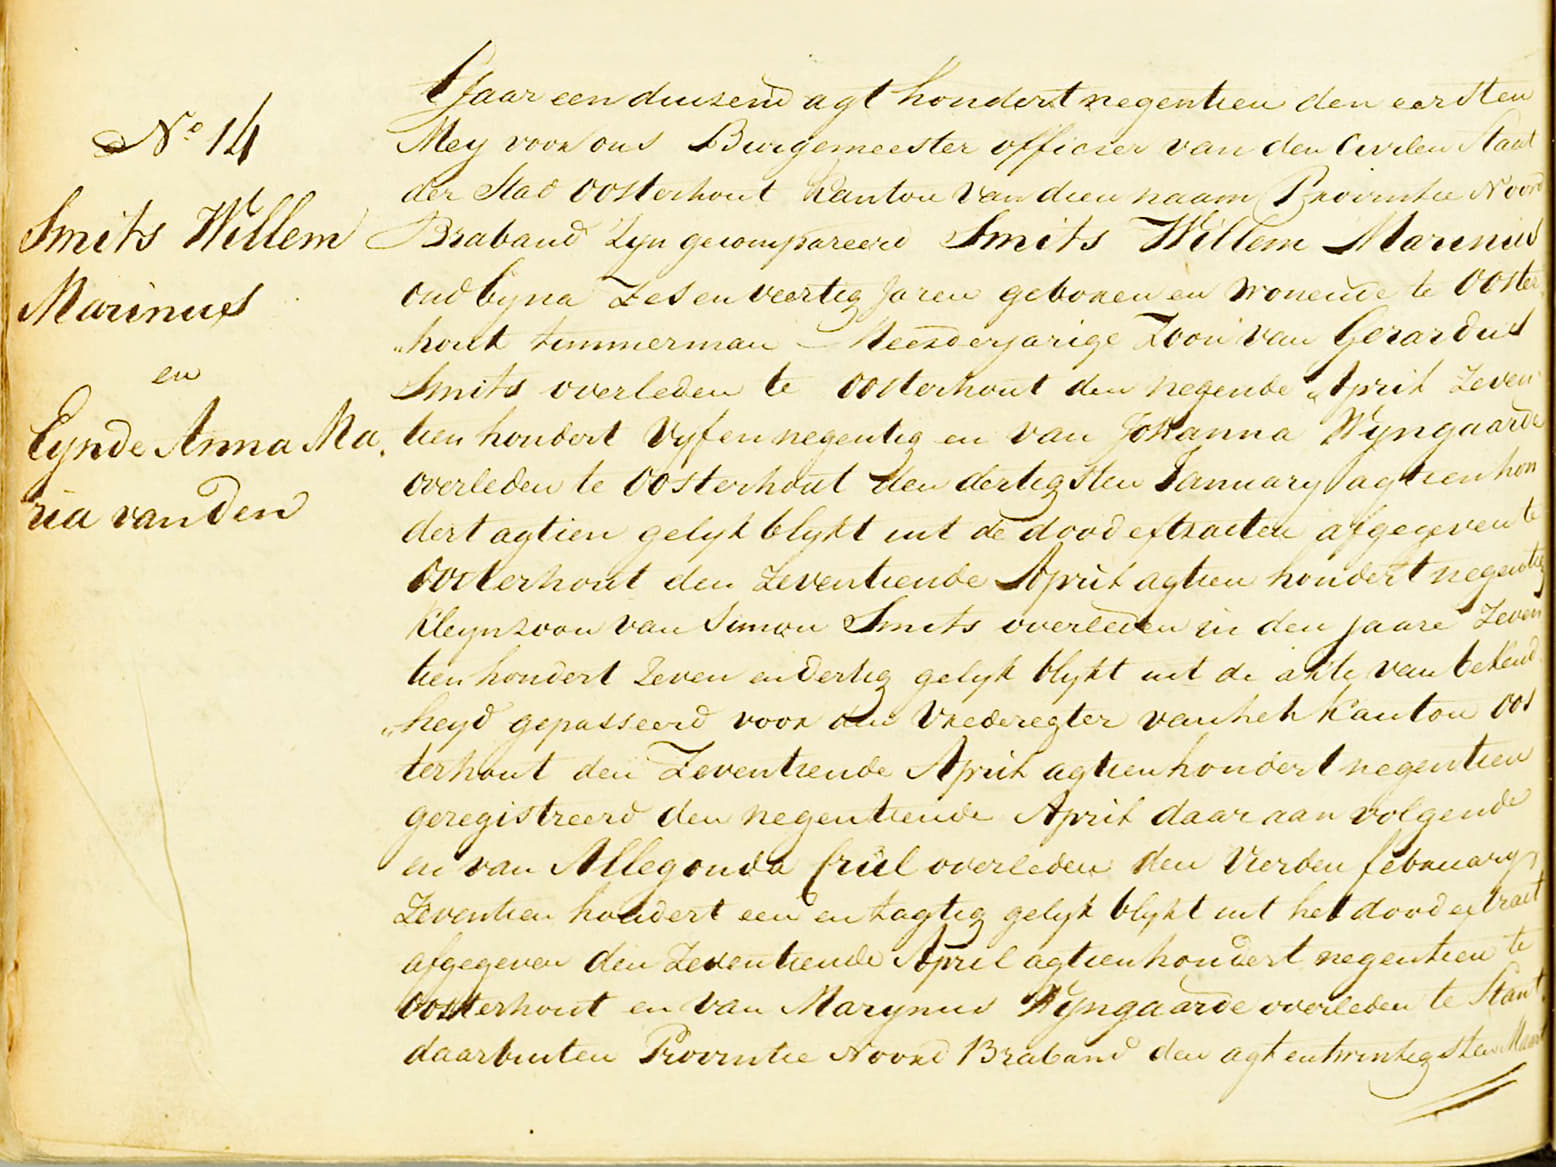 No 14
Smits Willem
Marinus
en
Eynde Anna Ma
ria van Den
t Jaar een duizend agt hondert negentien den eersten
Mey voor ons Burgemeester officier van den Civilen Staat
der Stad Oosterhout Kanton van dien naam Provintie Noord
Braband Zyn gecompareerd Smits Willem Marinus
oud byna Zes en veertig Jaren geboren en wonende te Ooster
"hout timmerman – Meerderjarige Zoon van Gerardus
Smits overleden te Oosterhout den negende April Zeven
tien hondert Vyf en negentig en van Johanna Wyngaarde
overleden te Oosterhout den dertigsten January agtien hon
dert agtien gelyk blykt uit de dood extracten afgegeven te
Oosterhout den Zeventiende April agtien hondert negentig
Kleynzoon van Simon Smits overleden in den jaare Zeven
tien hondert Zeven en dertig gelyk blykt uit de akte van bekend
"heyd gepasseerd voor den Vrederegter van het Kanton Oos
terhout den Zeventiende April agtien hondert negentien
geregistreerd den negentiende April daar aan volgende
en van Allegonda Criel overleden den Vierden february
Zeventien hondert een en tagtig gelyk blykt uit het dood extract
afgegeven den Zeventiende April agtien hondert negentien te
Oosterhout en van Marynus Wyngaarde overleden te Stant
daarbuten Provintie Noord Braband den agt en twintigsten Maart